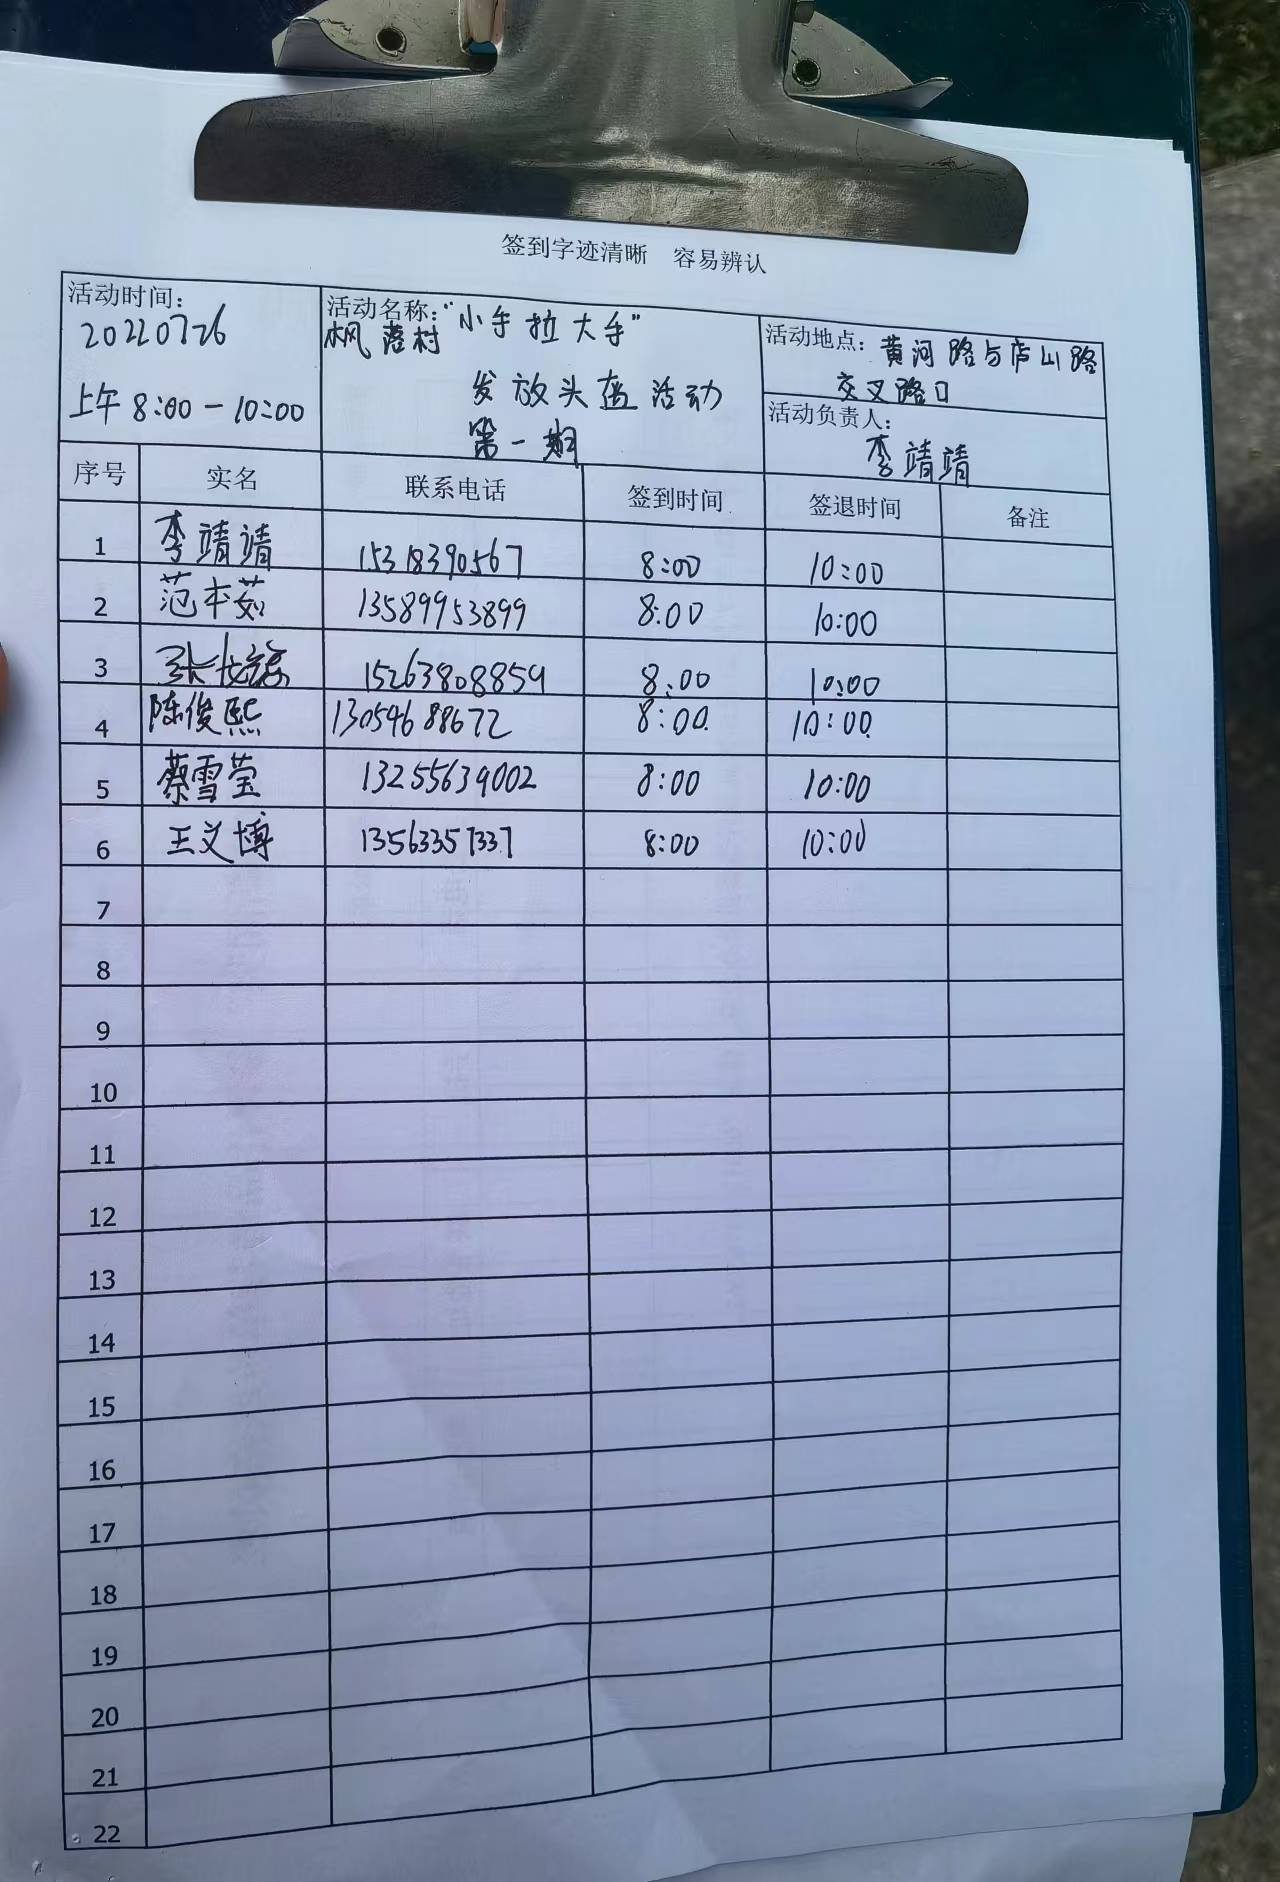 签到字迹清晰 容易辨认
活动时间：
20220726
上午 8:00－10:00
活动名称：“小手拉大手”
枫落村
发放头盔活动
第一期
活动地点：黄河路与庐山路
交叉路口
活动负责人：
李靖靖
序号 实名 联系电话 签到时间 签退时间 备注
1 李靖靖 15318390567 8:00 10:00
2 范本茹 13589953899 8:00 10:00
3 15263808859 8:00 10:00
4 陈俊熙 13054688672 8:00 10:00
5 蔡雪莹 13255639002 8:00 10:00
6 王义博 13563357337 8:00 10:00
7
8
9
10
11
12
13
14
15
16
17
18
19
20
21
22